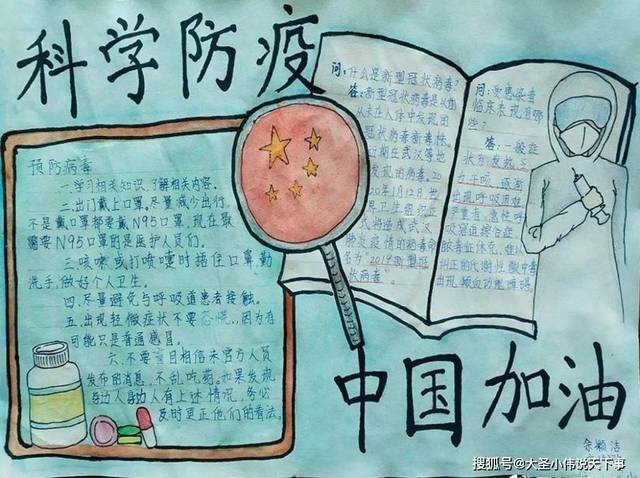 科学防疫
预防病毒
一.学习相关知识、了解相关内容。
二.出门戴上口罩。尽量减少出行。
不是戴口罩都要戴N95口罩,现在最
需要N95口罩的是医护人员们。
三.咳嗽或打喷嚏时捂住口罩,勤
洗手,做好个人卫生。
四.尽量避免与呼吸道患者接触。
五.出现轻微症状不要恐慌..因为有
可能只是普通感冒。
六.不要盲目相信未官方人员
发布的消息,不乱吃药。如果发现
身边人身边人有上述情况,务必
及时更正他们的看法
问:什么是新型冠状病毒?
答:新型冠状病毒是以前
从未在人体中发现的
冠状病毒新毒株。
近期在武汉等地
发现的病毒.20
20年1月12日世
界卫生组织正
式将造成武汉
肺炎疫情的病毒命
名为"2019新型冠
状病毒。
问:
临床表现有哪
些?
答:一般症
状为:发热、乏
力、干咳、逐渐
出现呼吸困难
严重者:急性呼
吸窘迫综合症
脓毒症休克、难以
纠正的代谢性酸中毒
出现凝血功能障碍
中国加油
余颖洁
搜狐号@大圣小伟说天下事